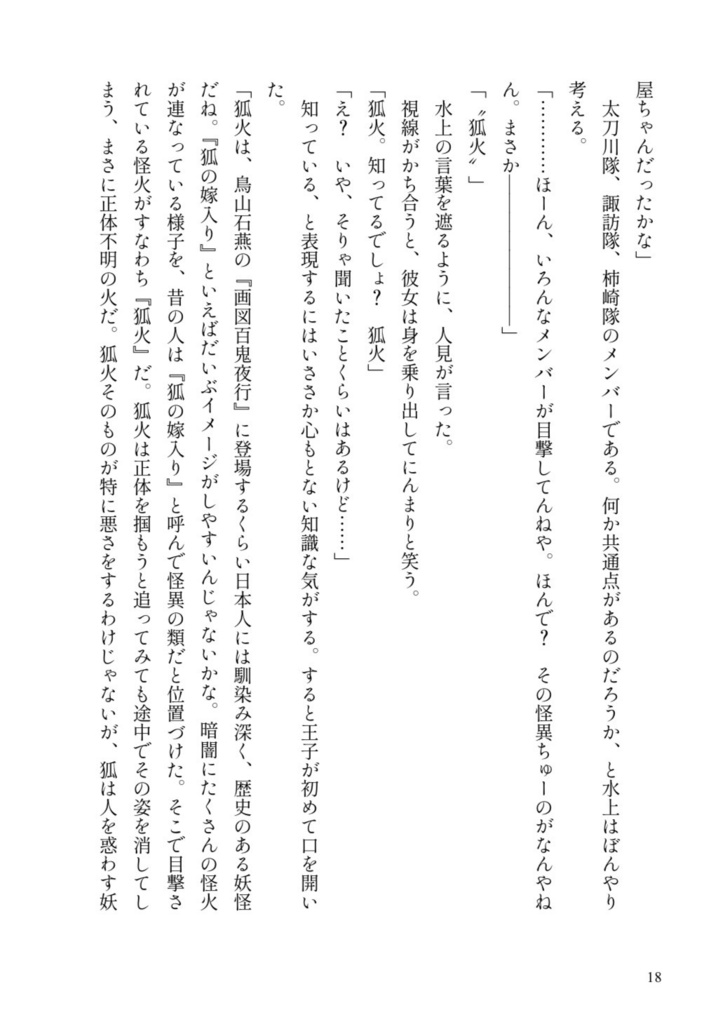 屋ちゃんだったかな」
　太刀川隊、諏訪隊、柿崎隊のメンバーである。何か共通点があるのだろうか、と水上はぼんやり
考える。
「…………ほーん、いろんなメンバーが目撃してんねや。ほんで？　その怪異ちゅーのがなんやね
ん。まさか――――――――」
「〝狐火〟」
　水上の言葉を遮るように、人見が言った。
　視線がかち合うと、彼女は身を乗り出してにんまりと笑う。
「狐火。知ってるでしょ？　狐火」
「え？　いや、そりゃ聞いたことくらいはあるけど……」
　知っている、と表現するにはいささか心もとない知識な気がする。すると王子が初めて口を開い
た。
「狐火は、鳥山石燕の『画図百鬼夜行』に登場するくらい日本人には馴染み深く、歴史のある妖怪
だね。『狐の嫁入り』といえばだいぶイメージがしやすいんじゃないかな。暗闇にたくさんの怪火
が連なっている様子を、昔の人は『狐の嫁入り』と呼んで怪異の類だと位置づけた。そこで目撃さ
れている怪火がすなわち『狐火』だ。狐火は正体を掴もうと追ってみても途中でその姿を消してし
まう、まさに正体不明の火だ。狐火そのものが特に悪さをするわけじゃないが、狐は人を惑わす妖
18